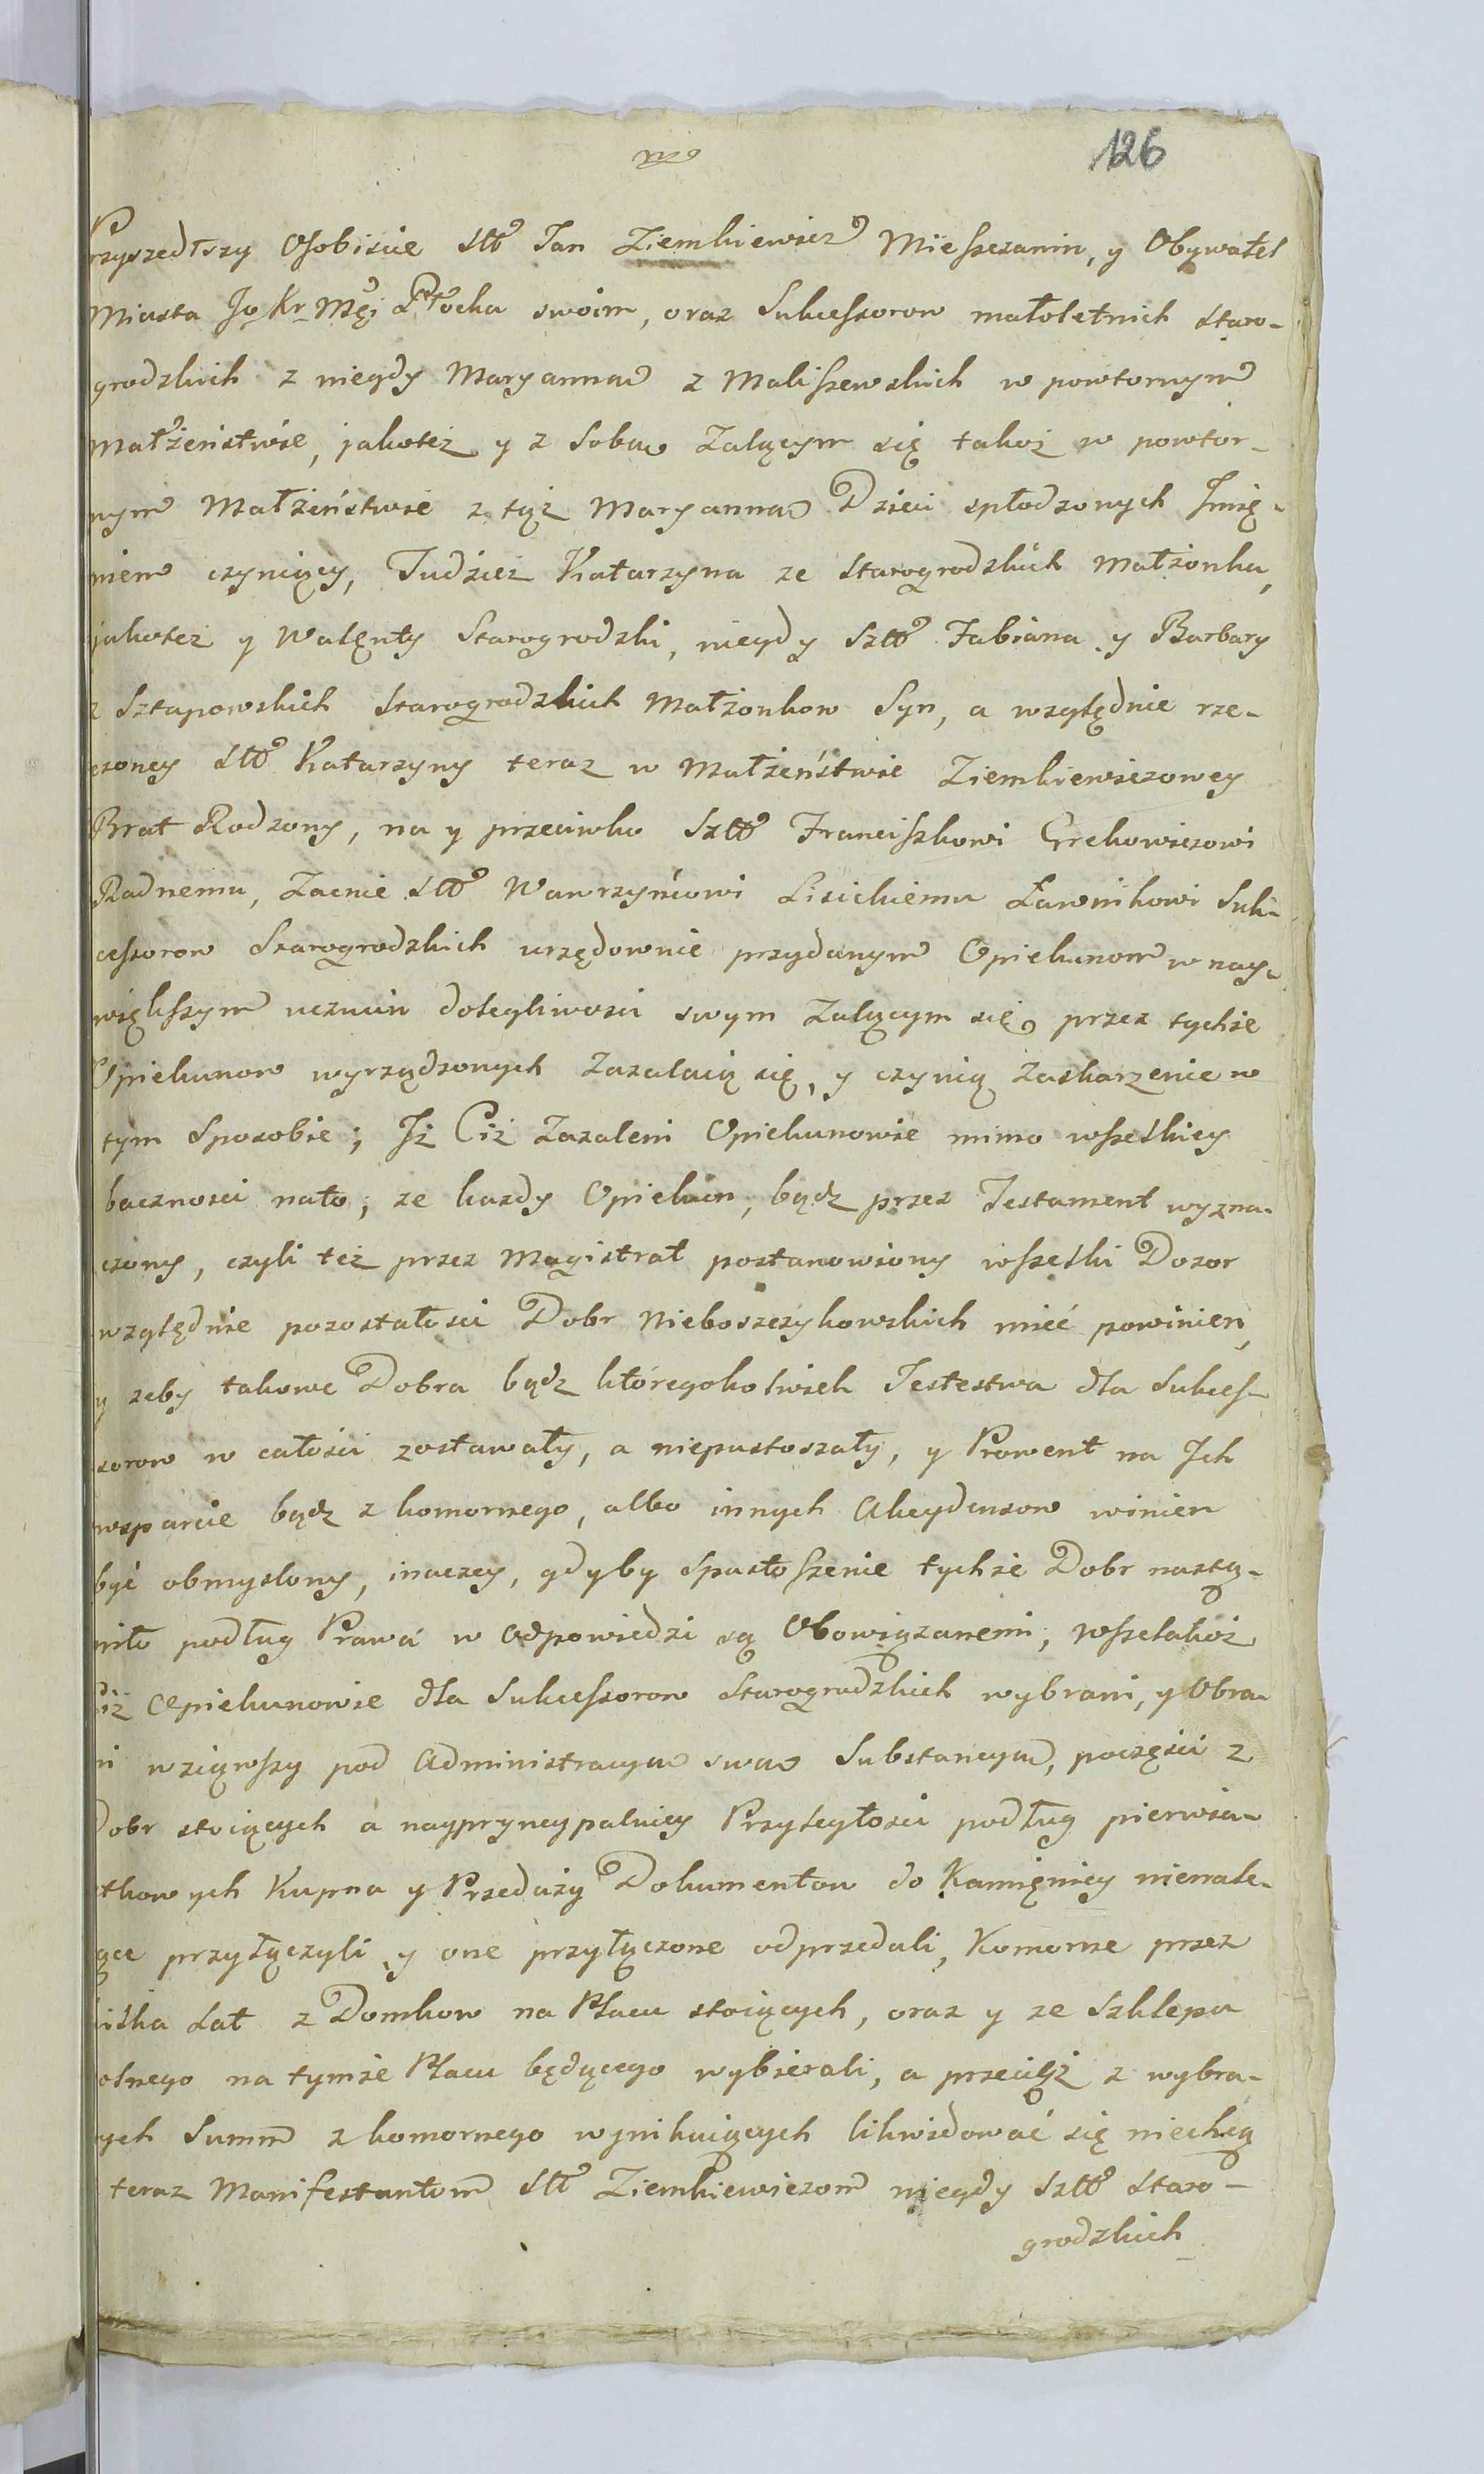 126
Przyszedłszy Osobiscie Sttȏ Jan Ziemkiewicz Mieszczanin, y Obywatel
Miasta Jo Kr Mści Płocka swoim, oraz Sukcessorow małoletnich Staro-
grodzkich z niegdy Maryanną z Maliszewskich w powtornym
Małżeństwie, jakoteż y z Sobą Zalącym się takoż w powtor-
nym Małżeństwie z tąż Maryanną Dzieci spłodzonych Imię-
niem czyniący, Tudzież Katarzyna ze Starogrodzkich Małżonka,
jakoteż y Walęnty Starogrodzki, niegdy Szttȏ Fabiana y Barbary
z Sztapowskich Starogrodzkich Małżonkow Syn, a względnie rze-
czoney Sttȏ Katarzyny teraz w Małżeństwie Ziemkiewiczowey
Brat Rodzony, na y przeciwko Szttȏ Franciszkowi Grekowiczowi
Radnemu, Zacnie Sttȏ Wawrzyńcowi Lisickiemu Ławnikowi Suk-
cessorow Starogrodzkich urzędownie przydanym Opiekunom w nay-
większym uczuciu dolegliwosci swym Zalącym się przez tychże
Opiekunow wyrządzonych Zazalaią się, y czynią Zaskarzenie w
tym Sposobie; Iż Ciż Zazaleni Opiekunowie mimo wszelkiey
bacznosci nato; ze kazdy Opiekun, bądz przez Testament wyzna-
czony, czyli też przez Magistrat postanowiony wszelki Dozor
względnie pozostałosci Dobr Nieboszczykowskich mieć powinien,
y zeby takowe Dobra bądz któregokolwiek Jestestwa dla Sukces-
sorow w całości zostawały, a niepustoszały, y Prowent na Ich
wsparcie bądz z komornego, albo innych Akcydensow winien
być obmyslony, inaczey, gdyby Spustoszenie tychże Dobr nastą-
piło podług Prawa w Odpowiedzi są Obowiązanemi, wszelakoż
Ciż Opiekunowie dla Sukcessorow Starogrodzkich wybrani, y Obra-
ni wziąwszy pod Administracyą swą Substancyą, poczęści z
Dobr stoiących a naypryncypalniey Przyległości podług pierwia-
stkowych Kupna y Przedaży Dokumentow do Kamięnicy nienale-
żące przyłączyli y one przyłączone odprzedali, Komorne przez
kilka Lat z Domkow na Placu stoiących, oraz y ze Szklepu
dolnego na tymże Placu będącego wybierali, a przeciąż z wybra-
nych Summ z komornego wynikaiących likwidować się niechcą
teraz Manifestantom Stt Ziemkiewiczom niegdy Szttȏ Staro-
grodzkich